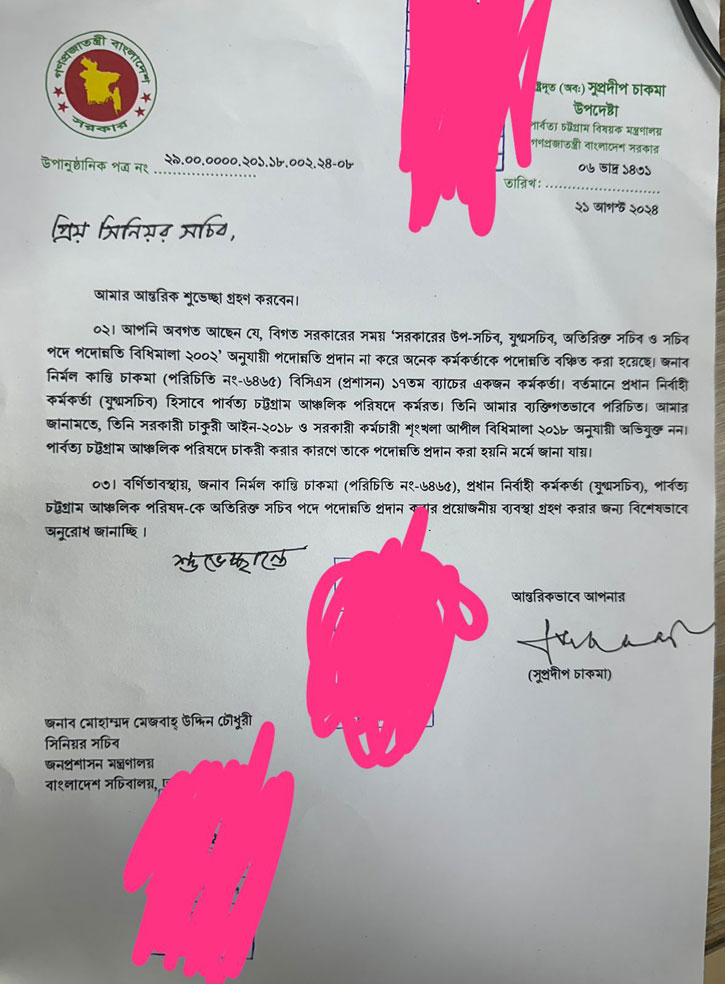 গণপ্রজাতন্ত্রী বাংলাদেশ
সরকার
(অবঃ) সুপ্রদীপ চাকমা
উপদেষ্টা
পার্বত্য চট্টগ্রাম বিষয়ক মন্ত্রণালয়
গণপ্রজাতন্ত্রী বাংলাদেশ সরকার
উপানুষ্ঠানিক পত্র নং ২৯.০০.০০০০.২০১.১৮.০০২.২৪-০৮
০৬ ভাদ্র ১৪৩১
তারিখ:
২১ আগস্ট ২০২৪
প্রিয় সিনিয়র সচিব,
আমার আন্তরিক শুভেচ্ছা গ্রহণ করবেন।
০২। আপনি অবগত আছেন যে, বিগত সরকারের সময় ‘সরকারের উপ-সচিব, যুগ্মসচিব, অতিরিক্ত সচিব ও সচিব
পদে পদোন্নতি বিধিমালা ২০০২’ অনুযায়ী পদোন্নতি প্রদান না করে অনেক কর্মকর্তাকে পদোন্নতি বঞ্চিত করা হয়েছে। জনাব
নির্মল কান্তি চাকমা (পরিচিতি নং-৬৪৬৫) বিসিএস (প্রশাসন) ১৭তম ব্যাচের একজন কর্মকর্তা। বর্তমানে প্রধান নির্বাহী
কর্মকর্তা (যুগ্মসচিব) হিসাবে পার্বত্য চট্টগ্রাম আঞ্চলিক পরিষদে কর্মরত। তিনি আমার ব্যক্তিগতভাবে পরিচিত। আমার
জানামতে, তিনি সরকারী চাকুরী আইন-২০১৮ ও সরকারী কর্মচারী শৃংখলা আপীল বিধিমালা ২০১৮ অনুযায়ী অভিযুক্ত নন।
পার্বত্য চট্টগ্রাম আঞ্চলিক পরিষদে চাকরী করার কারণে তাকে পদোন্নতি প্রদান করা হয়নি মর্মে জানা যায়।
০৩। বর্ণিতাবস্থায়, জনাব নির্মল কান্তি চাকমা (পরিচিতি নং-৬৪৬৫), প্রধান নির্বাহী কর্মকর্তা (যুগ্মসচিব), পার্বত্য
চট্টগ্রাম আঞ্চলিক পরিষদ-কে অতিরিক্ত সচিব পদে পদোন্নতি প্রদান করার প্রয়োজনীয় ব্যবস্থা গ্রহণ করার জন্য বিশেষভাবে
অনুরোধ জানাচ্ছি ।
শুভেচ্ছান্তে
আন্তরিকভাবে আপনার
(সুপ্রদীপ চাকমা)
জনাব মোহাম্মদ মেজবাহ্ উদ্দিন চৌধুরী
সিনিয়র সচিব
জনপ্রশাসন মন্ত্রণালয়
বাংলাদেশ সচিবালয়,